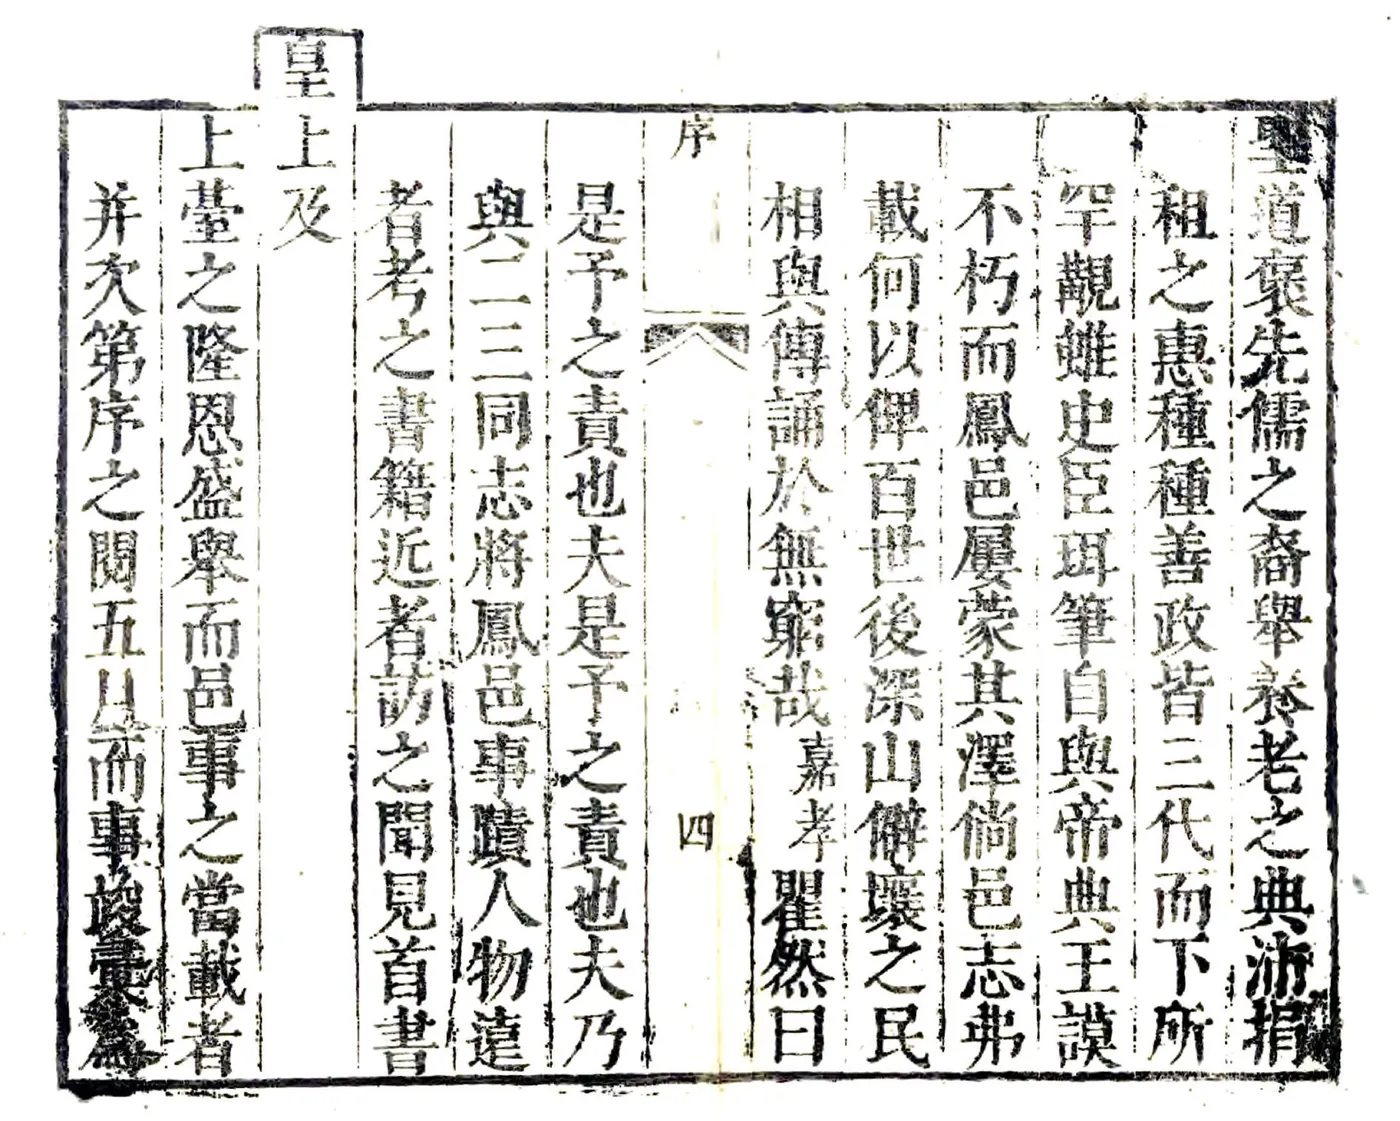 聖道褒先儒之裔舉養老之典沛捐
租之惠種種善政皆三代而下所
罕覯雖史臣珥筆自與帝典王謨
不朽而鳳邑屢蒙其澤倘邑志弗
載何以俾百世後深山僻壤之民
相與傳誦於無窮哉嘉孝瞿然曰
序
四
是予之責也夫是予之責也夫乃
與二三同志將鳳邑事蹟人物遠
者考之書籍近者訪之聞見首書
皇上及
上臺之隆恩盛舉而邑事之當載者
并次第序之閱五月而事竣彙為